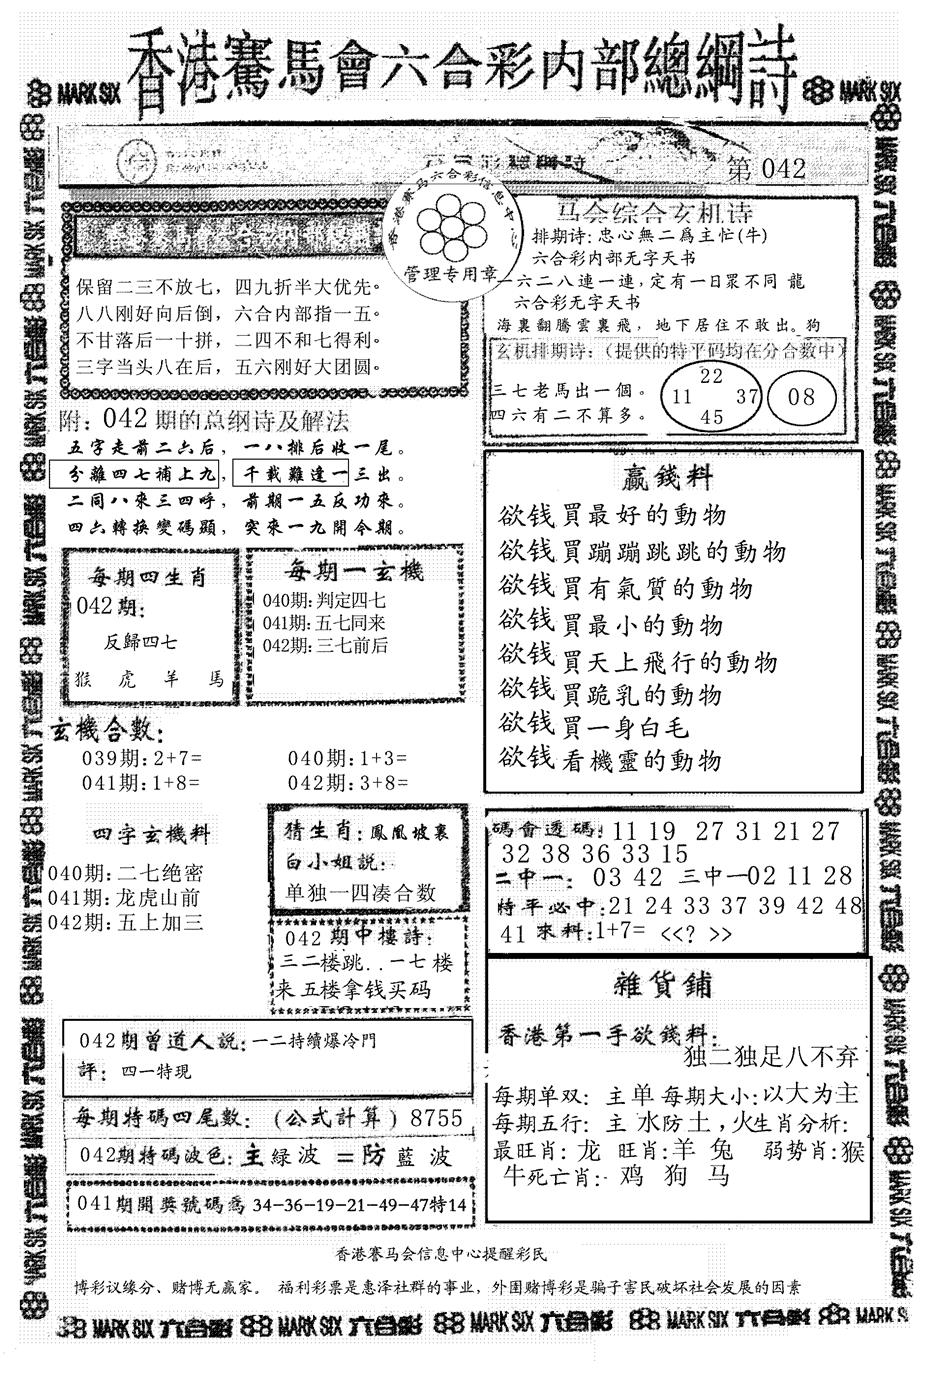 香港賽馬會六合彩内部總綱詩
MARK SIX
MARK SIX
第 042
香港赛马六合彩信息中心
管理专用章
保留二三不放七，四九折半大优先。
八八刚好向后倒，六合内部指一五。
不甘落后一十拼，二四不和七得利。
三字当头八在后，五六刚好大团圆。
马会综合玄机诗
排期诗:忠心無二爲主忙(牛)
六合彩内部无字天书
一六二八連一連,定有一日眾不同 龍
六合彩无字天书
海裏翻騰雲裏飛，地下居住不敢出。狗
玄机排期诗:（提供的特平码均在分合数中）
三七老馬出一個。
四六有二不算多。
22
11 37
45
08
附: 042 期的总纲诗及解法
五字走前二六后，一八排后收一尾。
分離四七補上九，千載難逢一三出。
二同八來三四呼，前期一五反功來。
四六轉换變碼顯，突來一九開今期。
每期四生肖
042期:
反歸四七
猴 虎 羊 馬
每期一玄機
040期:判定四七
041期:五七同来
042期:三七前后
玄機合數:
039期:2+7= 040期:1+3=
041期:1+8= 042期:3+8=
四字玄機料
040期:二七绝密
041期:龙虎山前
042期:五上加三
猜生肖:鳳凰坡裏
白小姐説:
单独一四凑合数
042期中樓詩:
三二楼跳..一七楼
来五楼拿钱买码
042期曾道人説:一二持續爆冷門
評: 四一特現
每期特碼四尾數: (公式計算) 8755
042期特碼波色:主緑波 =防 藍 波
041期開獎號碼爲 34-36-19-21-49-47特14
贏錢料
欲钱買最好的動物
欲钱買蹦蹦跳跳的動物
欲钱買有氣質的動物
欲钱買最小的動物
欲钱買天上飛行的動物
欲钱買跪乳的動物
欲钱買一身白毛
欲钱看機靈的動物
碼會透碼: 11 19 27 31 21 27
32 38 36 33 15
二中一: 03 42 三中一02 11 28
特平必中:21 24 33 37 39 42 48
41 來料:1+7= <<? >>
雜貨鋪
香港第一手欲錢料:
独二独足八不弃
每期单双: 主单 每期大小:以大为主
每期五行: 主 水防土,火生肖分析:
最旺肖: 龙 旺肖:羊 兔 弱势肖:猴
牛死亡肖: 鸡 狗 马
香港赛马会信息中心提醒彩民
博彩议缘分、赌博无赢家。 福利彩票是惠泽社群的事业，外围赌博彩是骗子害民破坏社会发展的因素
MARK SIX 六合彩 MARK SIX 六合彩 MARK SIX 六合彩 MARK SIX 六合彩 MARK SIX